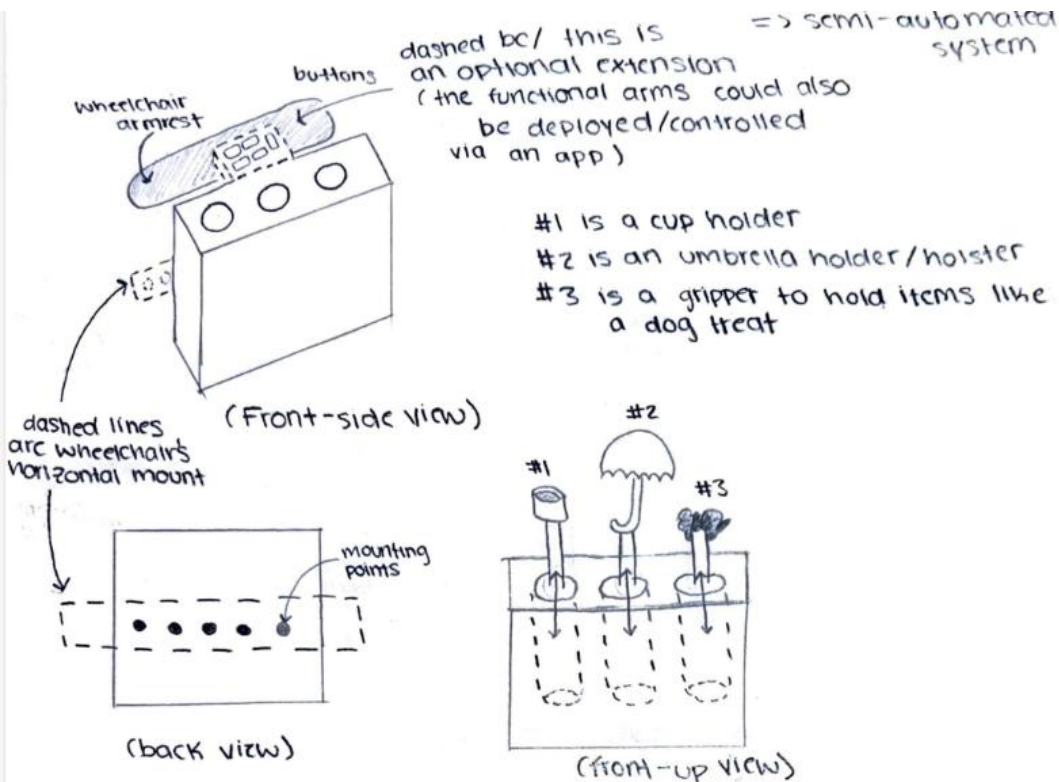 => semi-automated
system
dashed bc/ this is
an optional extension
(the functional arms could also
be deployed/controlled
via an app)
buttons
wheelchair
armrest
#1 is a cup holder
#2 is an umbrella holder/holster
#3 is a gripper to hold items like
a dog treat
(Front-side view)
dashed lines
are wheelchair's
horizontal mount
mounting
points
(back view)
#1
#2
#3
(front-up view)